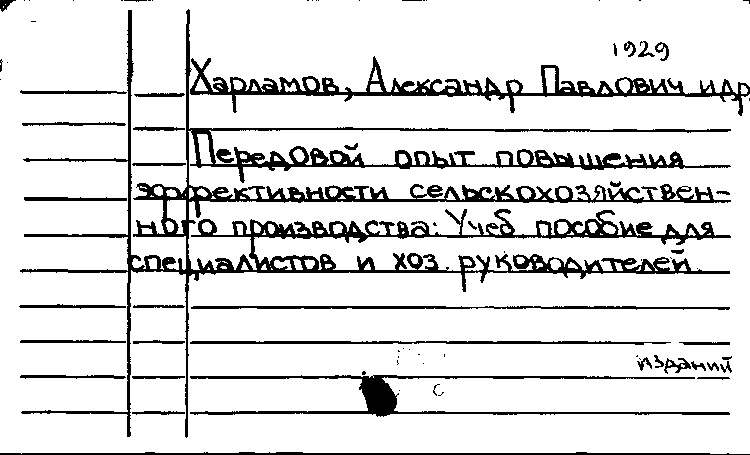 1929
Харламов, Александр Павлович и др
Передовой опыт повышения
эффективности сельскохозяйствен-
ного производства: Учеб пособие для
специалистов и хоз. руководителей.
изданий